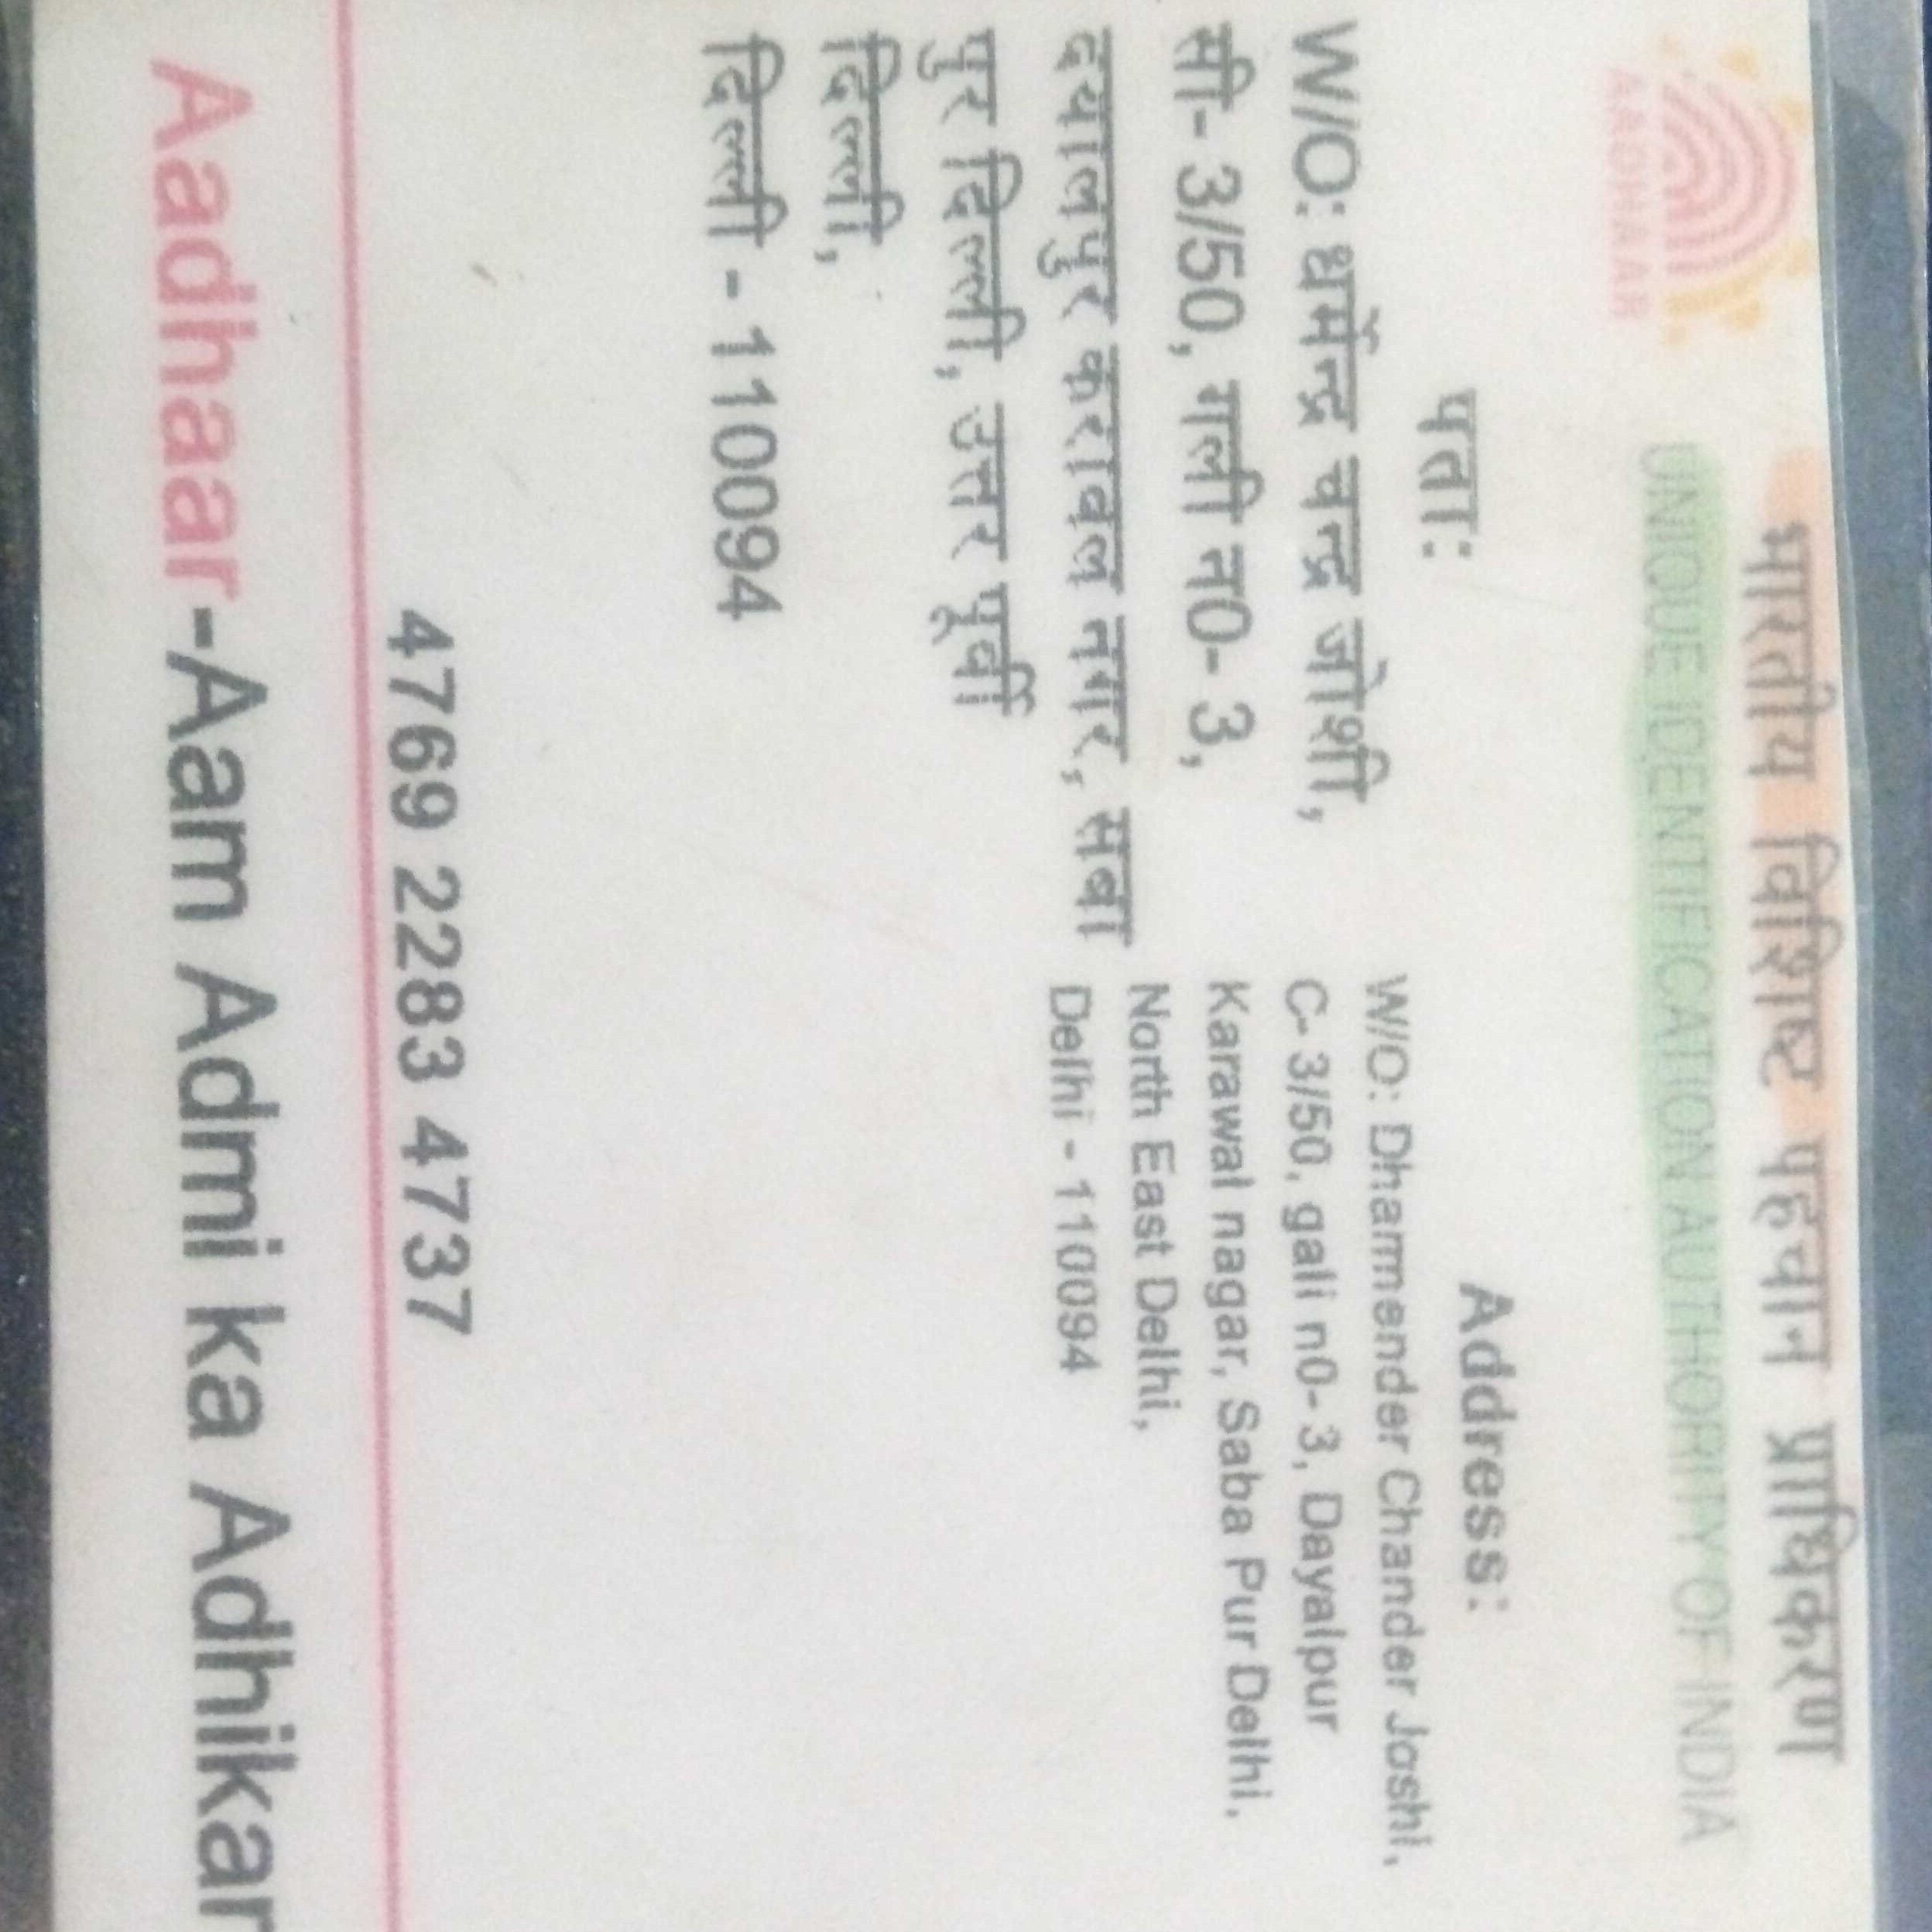 भारतीय विशिष्ट पहचान प्राधिकरण
UNIQUE IDENTIFICATION AUTHORITY OF INDIA
AADHAAR
पता:
W/O: धर्मेन्द्र चन्द्र जोशी,
सी- 3/50, गली न0- 3,
दयालपुर करावल नगर, सबा
पुर दिल्ली, उत्तर पूर्वी
दिल्ली,
दिल्ली - 110094
Address:
W/O: Dharmender Chander Joshi,
C- 3/50, gali n0- 3, Dayalpur
Karawal nagar, Saba Pur Delhi,
North East Delhi,
Delhi - 110094
4769 2283 4737
Aadhaar-Aam Admi ka Adhikar